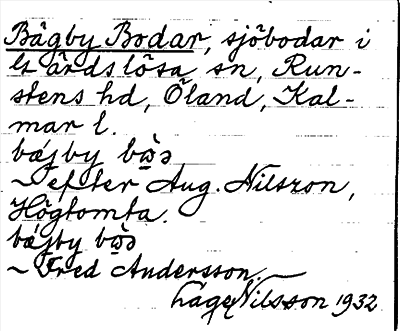 Bägby Bodar, sjöbodar i
Gärdslösa sn, Run-
stens hd, Öland, Kal-
mar l.
bæjby bωə
~ efter Aug. Nilsson,
Högtomta.
bæjby bωə
~ Fred Andersson.
Lage Nilsson 1932